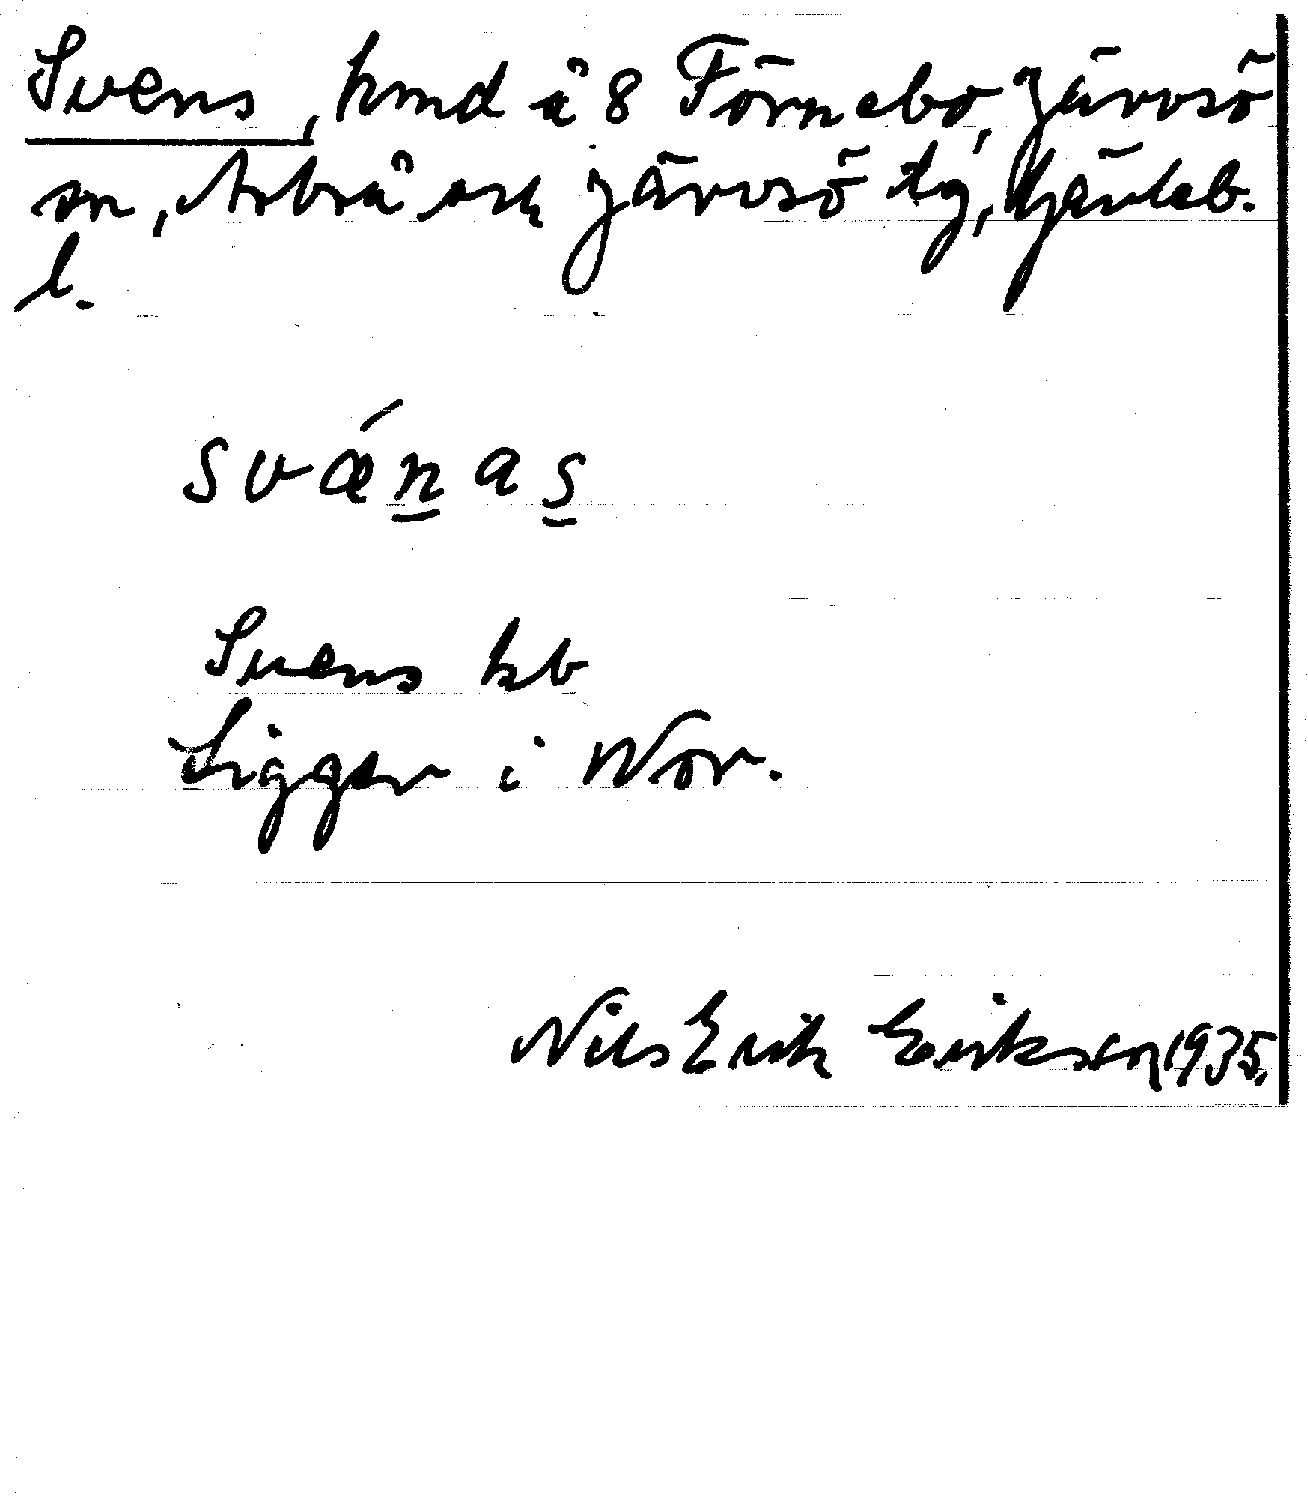 Svens, hmd å 8 Förnebo, Järvsö
sn, Arbrå och Järvsö tg, Gävleb.
l.
svǽn̲as̲
Svens kb
Ligger i Nor.
Nils Erik Eriksson 1935.